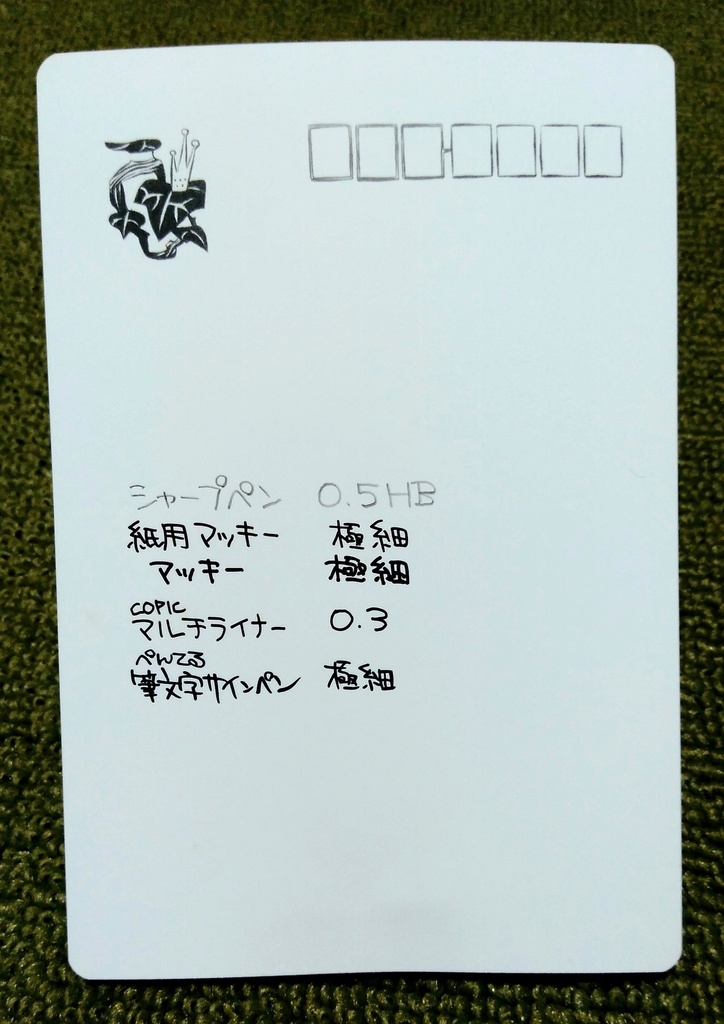 シャープペン 0.5HB
紙用マッキー 極細
マッキー 極細
COPIC
マルチライナー 0.3
ぺんてる
筆文字サインペン 極細